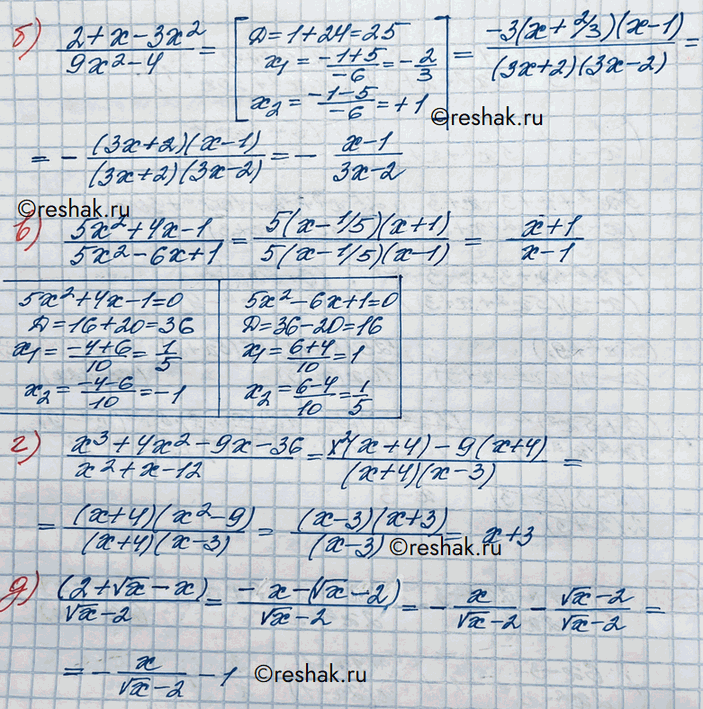 б) (2+x-3x²)/(9x²-4) = [Д=1+24=25
x₁=(-1+5)/-6=-2/3
x₂=(-1-5)/-6=+1] = (-3(x+2/3)(x-1))/((3x+2)(3x-2)) =
©reshak.ru
= - ((3x+2)(x-1))/((3x+2)(3x-2)) = - (x-1)/(3x-2)
©reshak.ru
в) (5x²+4x-1)/(5x²-6x+1) = (5(x-1/5)(x+1))/(5(x-1/5)(x-1)) = (x+1)/(x-1)
5x²+4x-1=0
Д=16+20=36
x₁=(-4+6)/10=1/5
x₂=(-4-6)/10=-1
5x²-6x+1=0
Д=36-20=16
x₁=(6+4)/10=1
x₂=(6-4)/10=1/5
г) (x³+4x²-9x-36)/(x²+x-12) = (x²(x+4)-9(x+4))/((x+4)(x-3)) =
= ((x+4)(x²-9))/((x+4)(x-3)) = ((x-3)(x+3))/(x-3) = x+3
©reshak.ru
д) (2+√x-x)/(√x-2) = (-x-(√x-2))/(√x-2) = - x/(√x-2) - (√x-2)/(√x-2) =
= - x/(√x-2) - 1
©reshak.ru